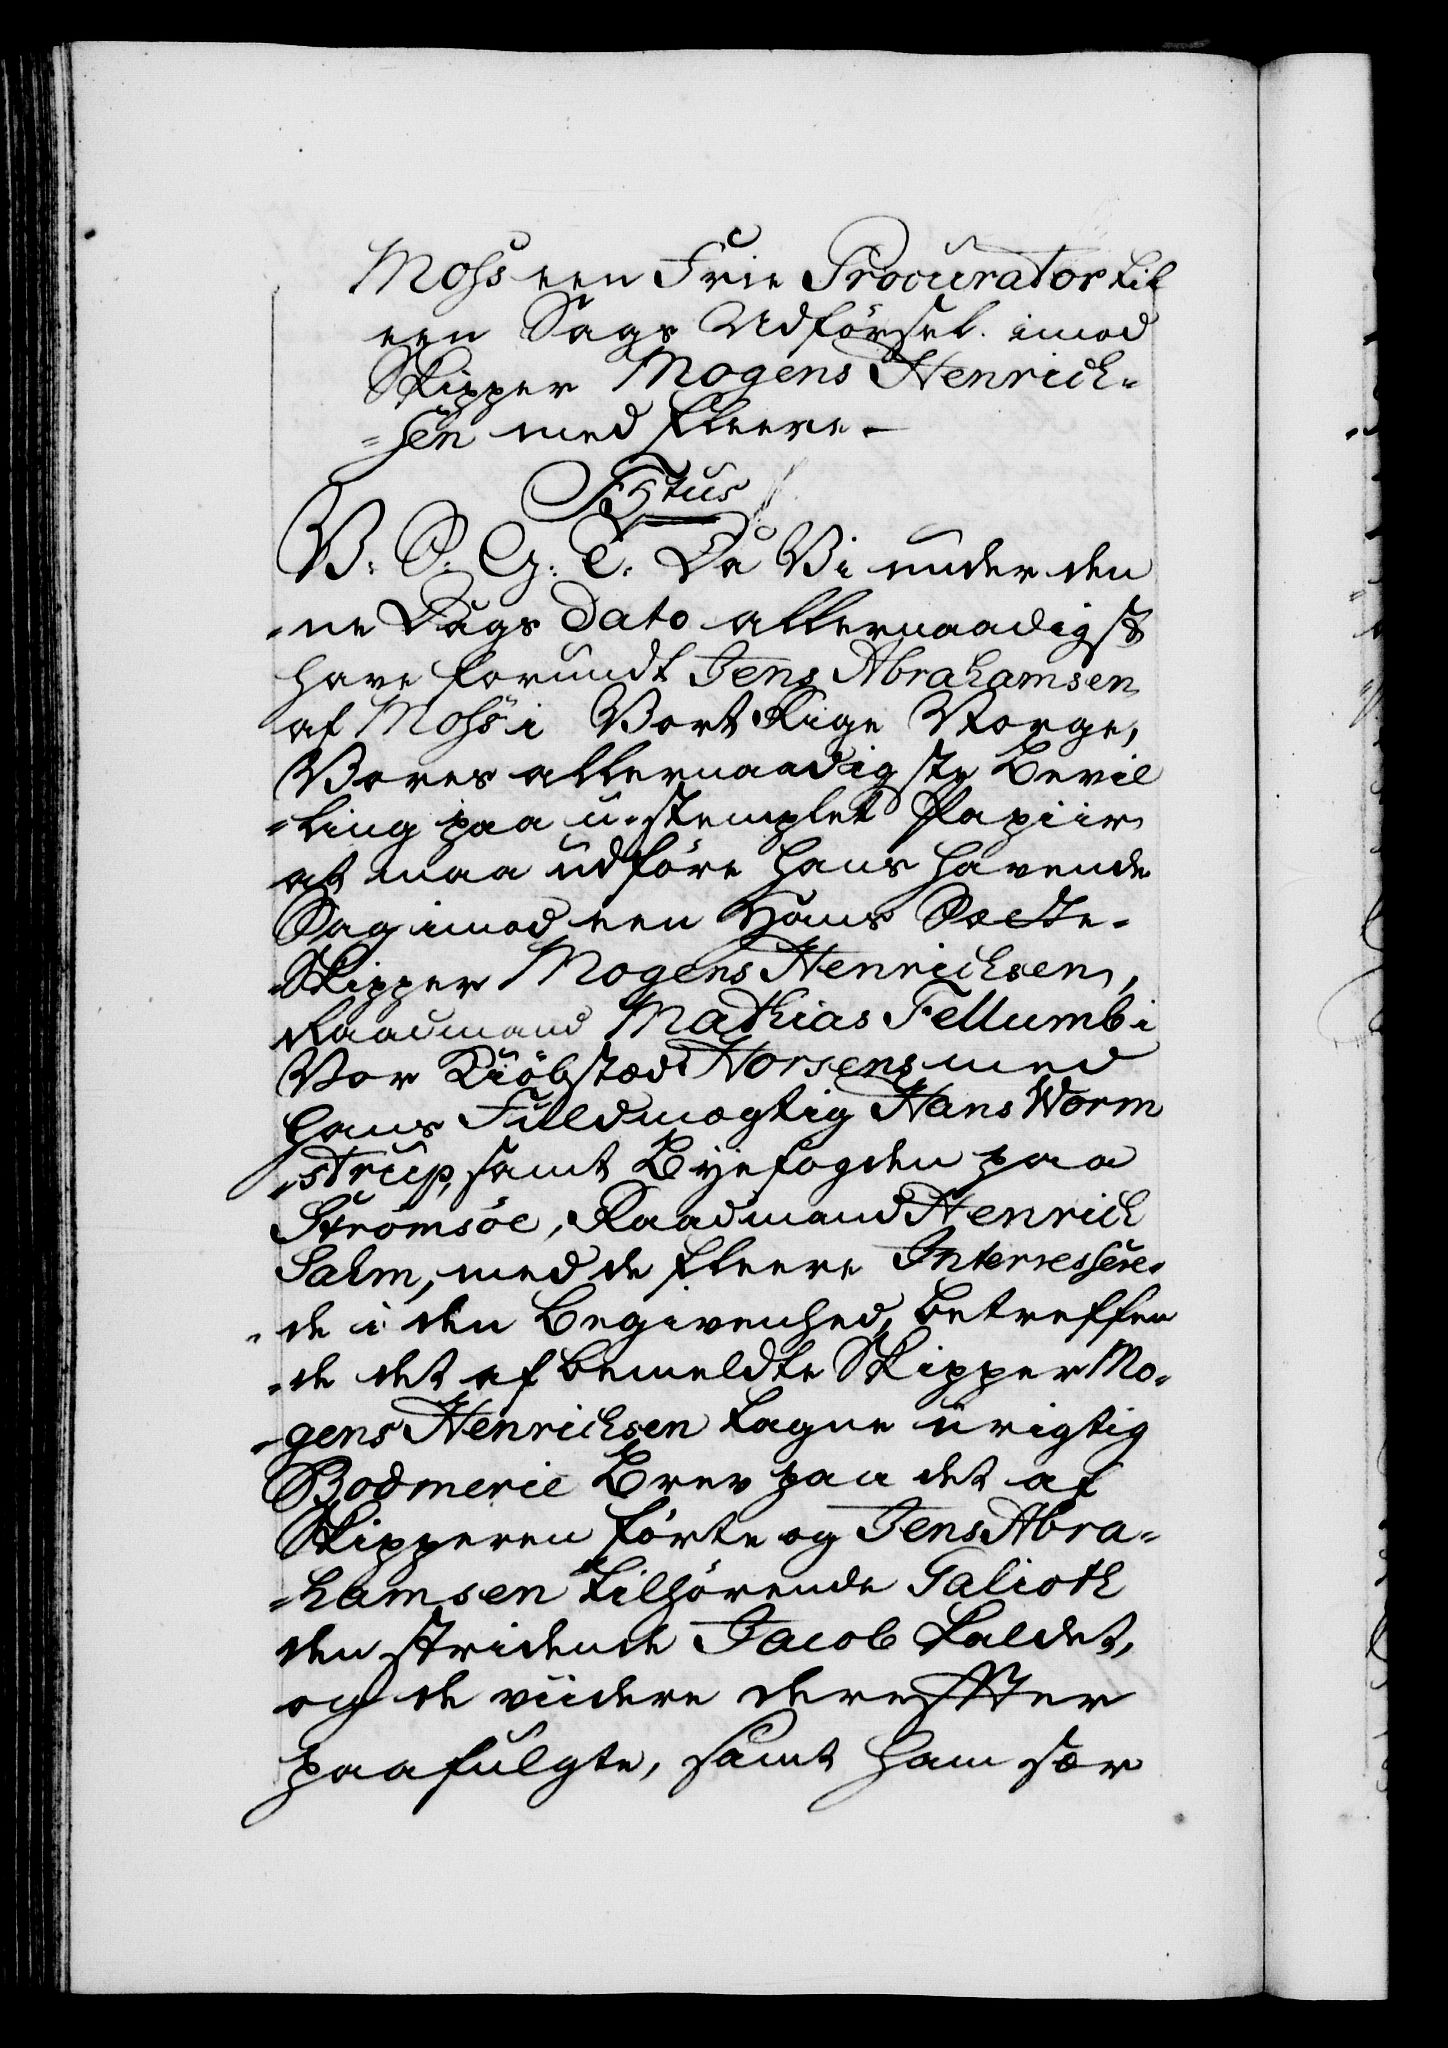 Moss een Frie Procurator til
een Sags Udförsel imod
Skipper Mogens Henrich-
=sen med fleere.
F5tus
V: S: G: T: Da Vi under den
=ne Dags Dato allernaadigst
have forundt Jens Abrahamsen
af Moss i Vort Rige Norge,
Vores allernaadigste Bevil
=ling paa u-stemplet Papiir
at maa udföre hans havende
Sag imod een Hans
Skipper Mogens Henrichsen,
Raadmand Mathias Fellumb i
Vor Kiöbstæd Horsens med
hans Fuldmægtig Hans Worm
=strup, samt Byefogden paa
Strömsöe, Raadmand Henrich
Salm, med de fleere Interessere-
=de i den Begivenhed, betreffen
=de det af bemeldte Skipper Mo-
=gens Henrichsen tagne urigtig
Bodmerie Brev paa det af
Skipperen förte og Jens Abra-
=hamsen tilhörende Galioth
den stridende Jacob kaldet,
og de viidere derefter
paafulgte, samt ham sær